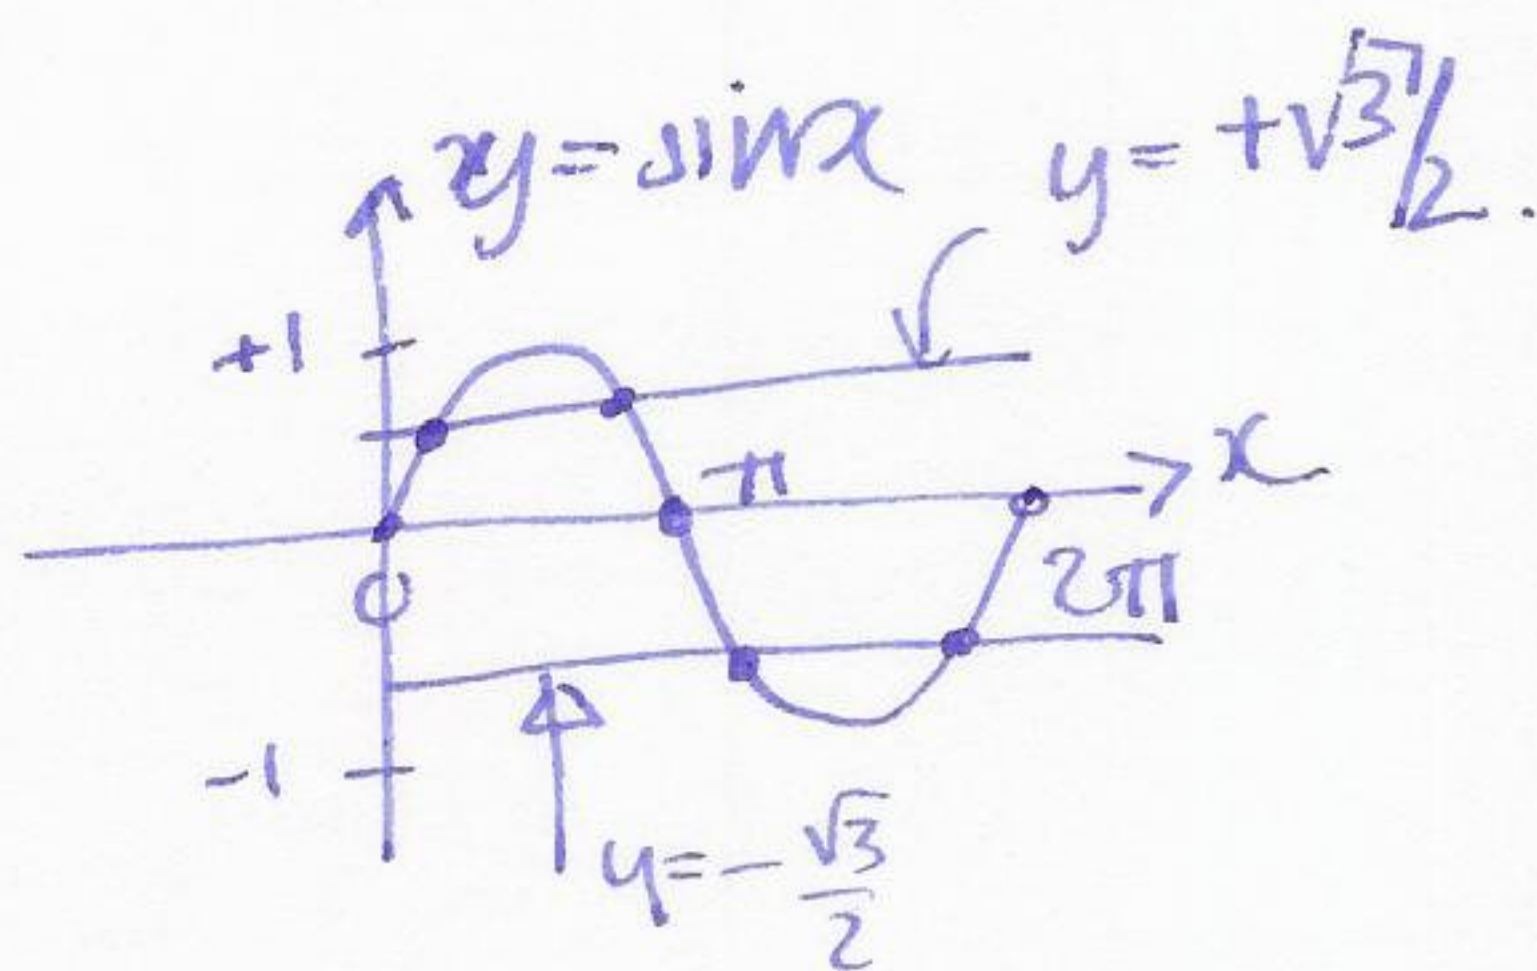 xy = sinx
y = +√3/2.
+1
π
x
0
2π
-1
y = -√3/2